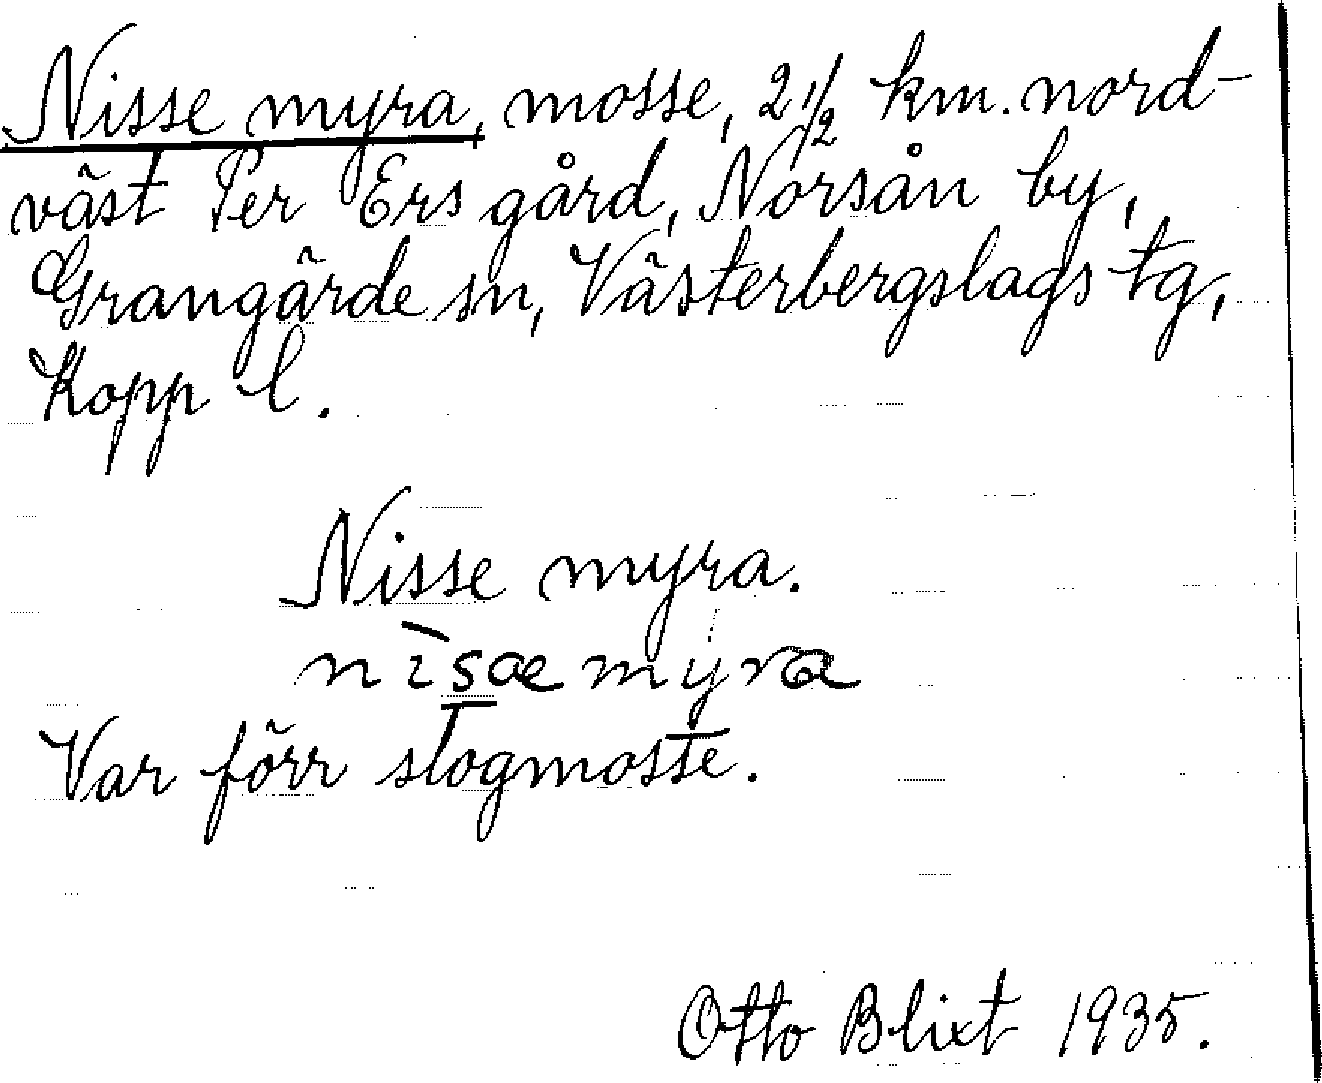 Nisse myra, mosse, 2 1/2 km. nord-
väst Per Ers gård, Norsån by,
Grangärde sn, Västerbergslags tg,
Kopp l.
Nisse myra.
nìsæmyra
Var förr slogmosse.
Otto Blixt 1935.